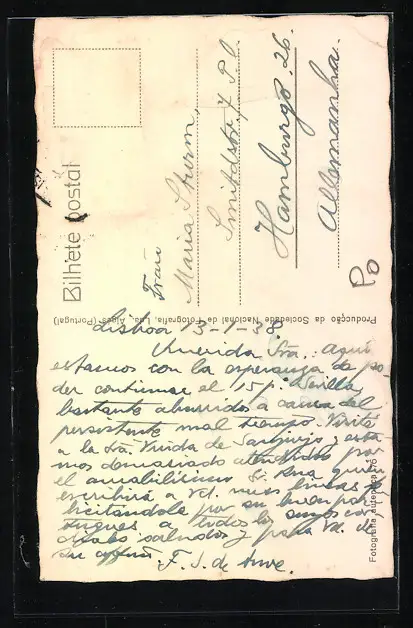 Bilhete postal
Frau
Maria Sturm,
Smidtstr, 7 P. l.
Hamburgo. 26.
Allemanha.
Po
Producção da Sociedade Nacional de Fotografia, Lda, Algés (Portugal)
Fotografia autentica
Lisboa 13-1-38
Querida Sra.: Aqui
estamos con la esperanza de po-
der continuar el 15 p. Sevilla,
bastante aburridos a causa del
persistente mal tiempo. Visité
a la Sra. Viuda de y esta-
mos demasiado atendidos por
el amabilísimo Sr. quien
escribirá a Vd. unas líneas
por su buen
a todos los suyos
saludos y para Vd. de
su F. S. de